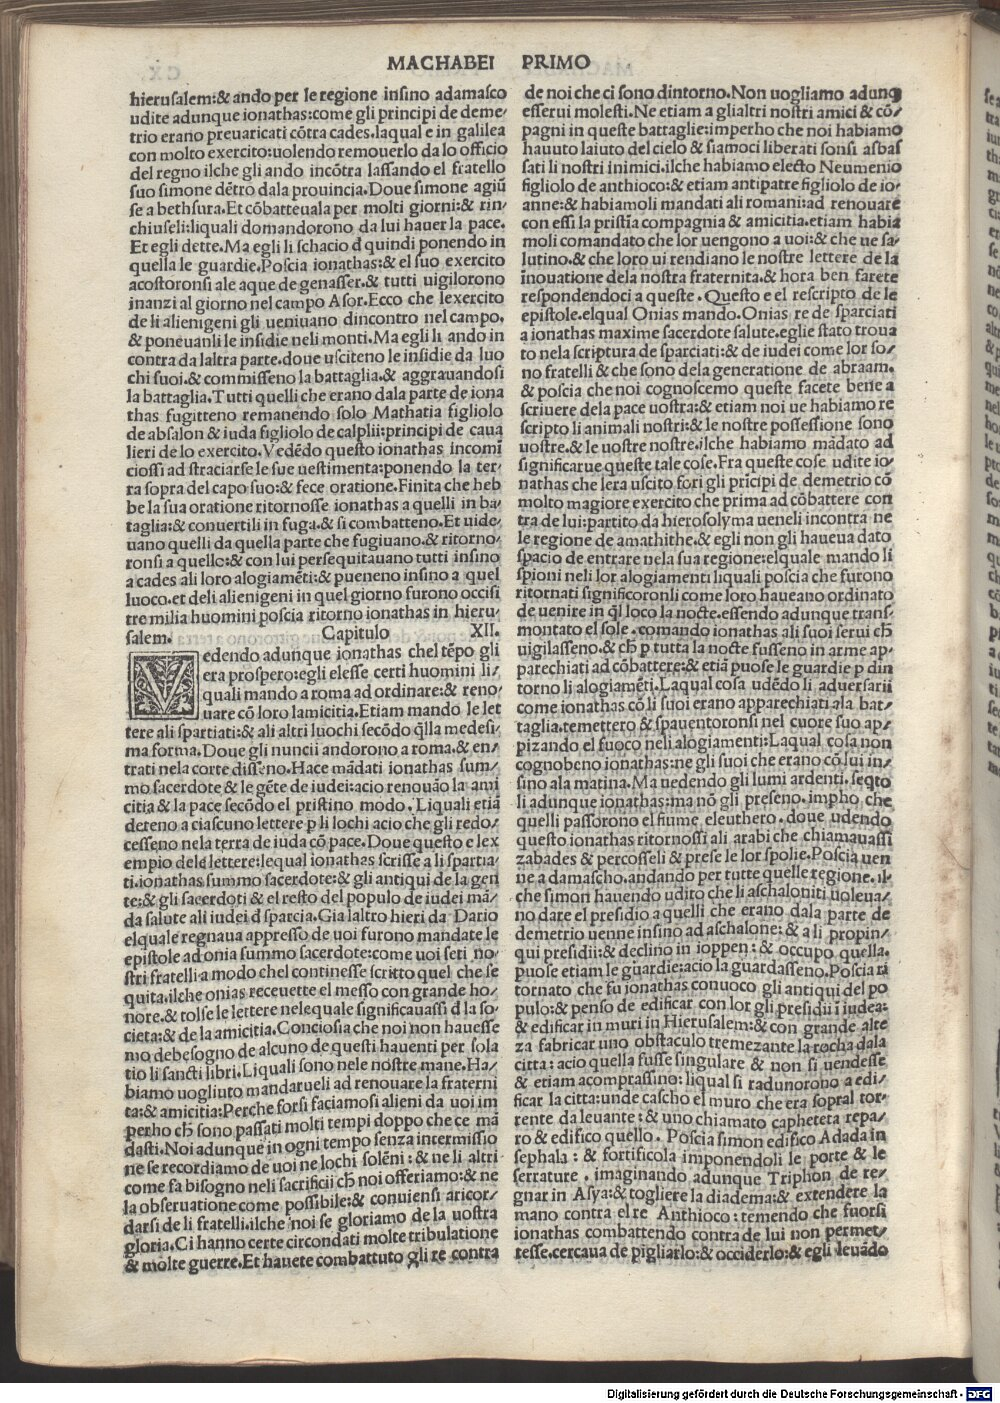 MACHABEI PRIMO
hierusalem:& ando per le regione insino adamasco
udite adunque ionathas:come gli principi de deme/
trio erano preuaricati cõtra cades.laqual e in galilea
con molto exercito:uolendo remouerlo da lo officio
del regno ilche gli ando incõtra lassando el fratello
suo simone dẽtro dala prouincia.Doue simone agiũ
se a bethsura.Et cõbatteuala per molti giorni:& rin/
chiuseli:liquali domandorono da lui hauer la pace.
Et egli dette.Ma egli li schacio đ quindi ponendo in
quella le guardie.Poscia ionathas:& el suo exercito
acostoronsi ale aque de genasser.& tutti uigilorono
inanzi al giorno nel campo Asor.Ecco che lexercito
de li alienigeni gli ueniuano dincontro nel campo.
& poneuanli le insidie neli monti.Ma egli li ando in
contra da laltra parte.doue usciteno le insidie da luo
chi suoi.& commisseno la battaglia.& aggrauandosi
la battaglia.Tutti quelli che erano dala parte de iona
thas fugitteno remanendo solo Mathatia figliolo
de absalon & iuda figliolo de calphi:principi de caua
lieri de lo exercito.Vedẽdo questo ionathas incomĩ
ciossi ad straciarse le sue uestimenta:ponendo la ter/
ra sopra del capo suo:& fece oratione.Finita che heb
be la sua oratione ritornosse ionathas a quelli in ba/
taglia:& conuertili in fuga.& si combatteno.Et uide/
uano quelli da quella parte che fugiuano.& ritorno/
ronsi a quello:& con lui persequitauano tutti insino
a cades ali loro alogiamẽti:& pueneno insino a quel
luoco.et deli alienigeni in quel giorno furono occisi
tre milia huomini poscia ritorno ionathas in hieru/
salem. Capitulo XII.
Vedendo adunque ionathas chel tẽpo gli
era prospero:egli elesse certi huomini li/
quali mando a roma ad ordinare:& reno/
uare cõ loro lamicitia.Etiam mando le let
tere ali spartiati:& ali altri luochi secõdo q̃lla medesi/
ma forma.Doue gli nuncii andorono a roma.& en/
trati nela corte disseno.Hace mãdati ionathas sum/
mo sacerdote & le gẽte de iudei:acio renouão la ami
citia & la pace secõdo el pristino modo.Liquali etiã
deteno a ciascuno lettere p li lochi acio che gli redo/
cesseno nela terra de iuda cõ pace.Doue questo e lex
empio dele lettere:lequal ionathas scrisse a li spartia/
ti.ionathas summo sacerdote:& gli antiqui de la gen
te:& gli sacerdoti & el resto del populo de iudei mã/
da salute ali iudei đ sparcia.Gia laltro hieri da Dario
elquale regnaua appresso de uoi furono mandate le
epistole ad onia summo sacerdote:come uoi seti no/
stri fratelli a modo chel continesse scritto quel che se
quita.ilche onias receuette el messo con grande ho/
nore.& tolse le lettere nelequale significauassi đ la so/
cieta:& de la amicitia.Conciosia che noi non hauesse
mo debesogno de alcuno de questi hauenti per sola
tio li sancti libri.Liquali sono nele nostre mane.Ha/
biamo uogliuto mandarueli ad renouare la fraterni
ta:& amicitia:Perche forsi faciamosi alieni da uoi im
perho cħ sono passati molti tempi doppo che ce mã
dasti.Noi adunque in ogni tempo senza intermissio
ne se recordiamo de uoi ne lochi solẽni:& ne li altri
come fa bisogno neli sacrificii cħ noi offeriamo:& ne
la obseruatione come possibile:& conuiensi aricor/
darsi de li fratelli.ilche noi se gloriamo de la uostra
gloria.Ci hanno certe circondati molte tribulatione
& molte guerre.Et hauete combattuto gli re contra
de noi che ci sono dintorno.Non uogliamo adunq
esserui molesti.Ne etiam a glialtri nostri amici & cõ/
pagni in queste battaglie:imperho che noi habiamo
hauuto laiuto del cielo & siamoci liberati sonsi asbas
sati li nostri inimici.ilche habiamo electo Neumenio
figliolo de anthioco:& etiam antipatre figliolo de io/
anne:& habiamoli mandati ali romani:ad renouare
con essi la pristia compagnia & amicitia.etiam habia
moli comandato che lor uengono a uoi:& che ue sa/
lutino.& che loro ui rendiano le nostre lettere de la
ĩnouatione dela nostra fraternita.& hora ben farete
respondendoci a queste.Questo e el rescripto de le
epistole.elqual Onias mando.Onias re de sparciati
a ionathas maxime sacerdote salute.eglie stato troua
to nela scriptura de sparciati:& de iudei come lor so/
no fratelli & che sono dela generatione de abraam.
& poscia che noi cognoscemo queste facete bene a
scriuere dela pace uostra:& etiam noi ue habiamo re
scripto li animali nostri:& le nostre possessione sono
uostre.& le uostre nostre.ilche habiamo mãdato ad
significarue queste tale cose.Fra queste cose udite io/
nathas che lera uscito fori gli prĩcipi de demetrio cõ
molto magiore exercito che prima ad cõbattere con
tra de lui:partito da hierosolyma ueneli incontra ne
le regione de amathithe.& egli non gli haueua dato
spacio de entrare nela sua regione:elquale mando li
spioni neli lor alogiamenti liquali poscia che furono
ritornati significoronli come loro haueano ordinato
de uenire in q̃l loco la nocte.essendo adunque trans/
montato el sole.comando ionathas ali suoi serui cħ
uigilasseno.& cħ p tutta la nocte fusseno in arme ap/
parechiati ad cõbattere:& etiã puose le guardie p din
torno li alogiamẽti.Laqual cosa udẽdo li aduersarii
come ionathas cõ li suoi erano apparechiati ala bat/
taglia.temettero & spauentoronsi nel cuore suo ap/
pizando el fuoco neli alogiamenti:Laqual cosa non
cognobeno ionathas:ne gli suoi che erano cõ lui in/
sino ala matina.Ma uedendo gli lumi ardenti.seqto
li adunque ionathas:ma nõ gli preseno.impho che
quelli passorono el fiume eleuthero.doue udendo
questo ionathas ritornossi ali arabi che chiamauassi
zabades & percosseli & prese le lor spolie.Poscia uen
ne a damascho.andando per tutte quelle regione.il/
che simon hauendo udito che li aschaloniti uolena/
no dare el presidio a quelli che erano dala parte de
demetrio uenne insino ad aschalone:& a li propin/
qui presidii:& declino in ioppen:& occupo quella.
puose etiam le guardie:acio la guardasseno.Poscia ri
tornato che fu ionathas conuoco gli antiqui del po
pulo:& penso de edificar con lor gli presidii ĩ iudea:
& edificar in muri in Hierusalem:& con grande alte
za fabricar uno obstaculo tremezante la rocha dala
citta:acio quella fusse singulare & non si uendesse
& etiam acomprassino:liqual si radunorono a edi/
ficar la citta:unde cascho el muro che era sopral tor/
rente da leuante:& uno chiamato capheteta repa/
ro & edifico quello.Poscia simon edifico Adada in
sephala:& fortificola imponendoli le porte & le
serrature.imaginando adunque Triphon de re/
gnar in Asya:& togliere la diadema:& extendere la
mano contra el re Anthioco:temendo che fuorsi
ionathas combattendo contra de lui non permet/
tesse.cercaua de pigliarlo:& occiderlo:& egli leuãdo
Digitalisierung gefördert durch die Deutsche Forschungsgemeinschaft - DFG